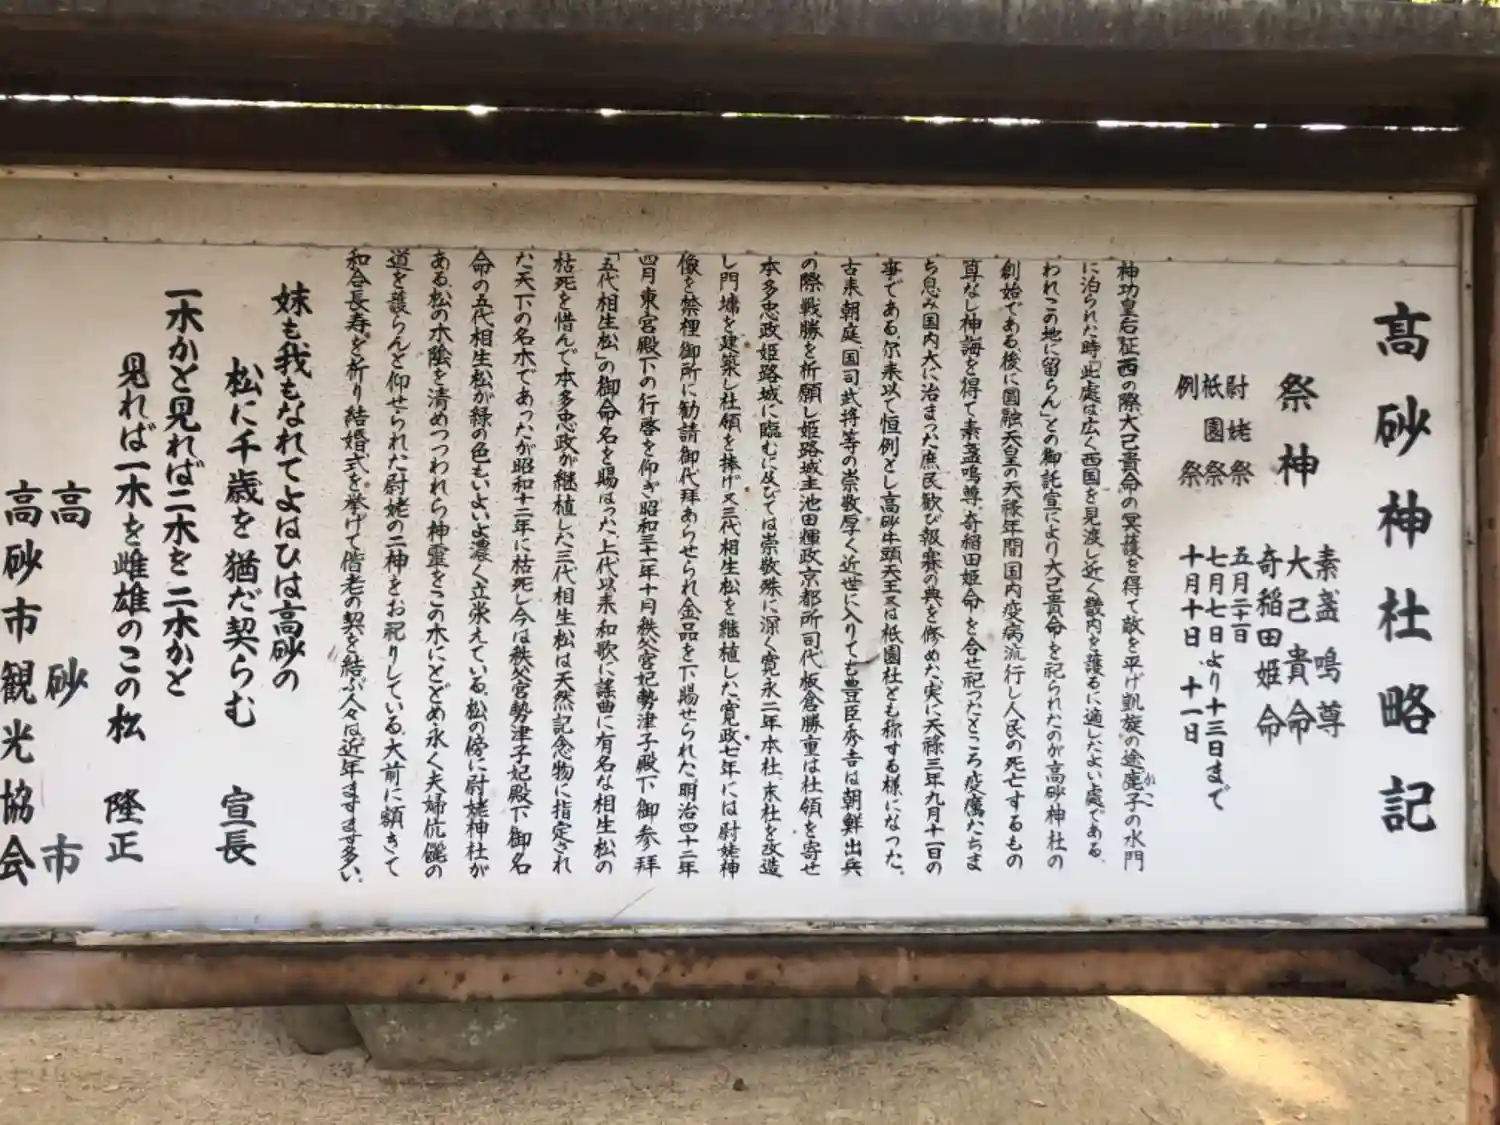 高砂神社略記
祭神
素盞嗚尊
大己貴命
奇稲田姫命
尉姥祭 五月二十一日
祇園祭 七月七日より十三日まで
例祭 十月十日 十一日
神功皇后征西の際大己貴命の冥護を得て敵を平げ凱旋の途鹿子の水門
に泊られた時「此處は広く西国を見渡し近く畿内を護るに適したよい處である。
われこの地に留らん」との御託宣により大己貴命を祀られたのが高砂神社の
創始である。後に圓融天皇の天禄年間国内疫病流行し人民の死亡するもの
算なし神誨を得て素盞嗚尊、奇稲田姫命を合せ祀ったところ疫癘たちま
ち息み国内大に治まった庶民歓び報賽の典を修めた、実に天禄三年九月十一日の
事である。尓来以て恒例とし高砂牛頭天王又は祇園社とも称する様になった。
古来朝庭、国司武将等の崇敬厚く近世に入りても豊臣秀吉は朝鮮出兵
の際戦勝を祈願し姫路城主池田輝政京都所司代板倉勝重は社領を寄せ
本多忠政姫路城に臨むに及びては崇敬殊に深く寛永二年本社、末社を改造
し門墉を建築し社領を捧げ又三代相生松を継植した。寛政七年には尉姥神
像を禁裡御所に勧請御代拜あらせられ金品を下賜せられた。明治四十二年
四月東宮殿下の行啓を仰ぎ昭和三十一年十月秩父宮妃勢津子殿下御参拜
「五代相生松」の御命名を賜はった。上代以来和歌に謡曲に有名な相生松の
枯死を惜んで本多忠政が継植した三代相生松は天然記念物に指定され
た天下の名木であったが昭和十二年に枯死し今は秩父宮勢津子妃殿下御名
命の五代相生松が緑の色もいよいよ濃く立栄えている。松の傍に尉姥神社が
ある。松の木陰を清めつつわれら神霊をこの木にとどめ永く夫婦伉儷の
道を護らんと仰せられた尉姥の二神をお祀りしている。大前に額きて
和合長寿を祈り結婚式を挙げて偕老の契を結ぶ人々は近年ますます多い。
妹も我もなれてよはひは高砂の
松に千歳を猶だ契らむ 宣長
一木かと見れば二木を二木かと
見れば一木を雌雄のこの松 隆正
高砂市
高砂市観光協会